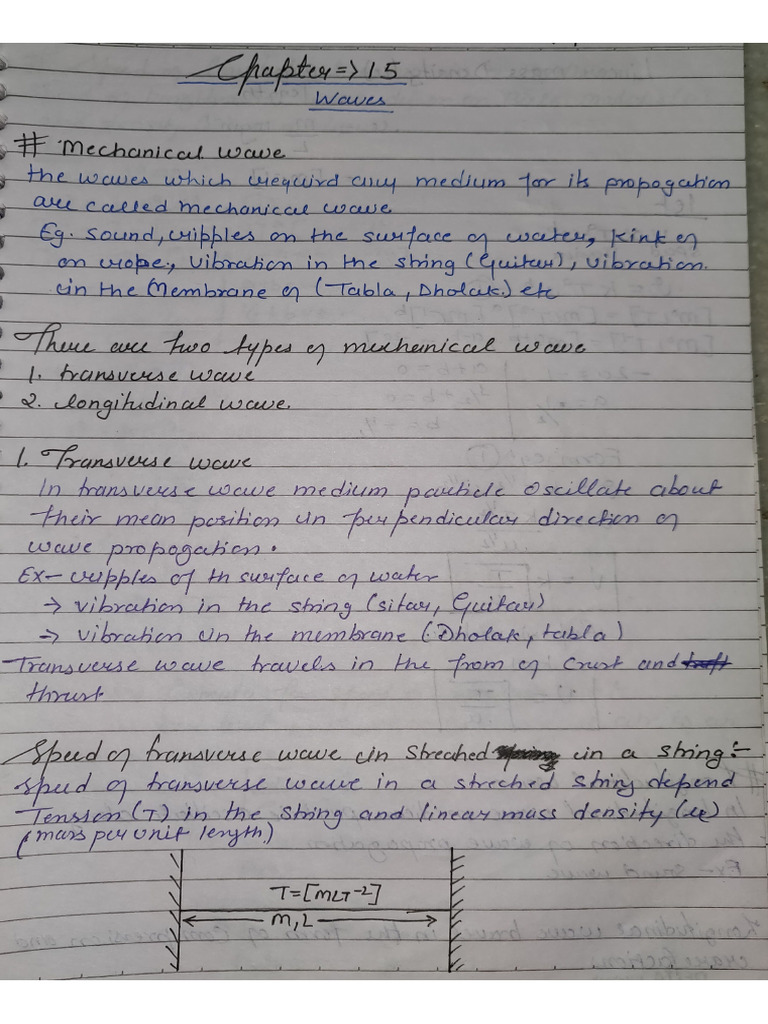 Chapter => 15
Waves
# Mechanical wave
the waves which requird any medium for its propogation
are called mechanical wave
Eg. Sound, ripples on the surface of water, kink of
on rope, Vibration in the string (Guitar), vibration
in the Membrane of (Tabla, Dholak.) etc
There are two types of mechanical wave
1. transverse wave
2. longitudinal wave.
1. Transverse wave
In transverse wave medium particle oscillate about
their mean position in perpendicular direction of
wave propogation.
Ex- ripples of th surface of water
→ vibration in the string (sitar, Guitar)
→ vibration in the membrane (Dholak, tabla)
Transverse wave travels in the from of Crust and
thrust
Speed of transverse wave in Streached in a string:-
speed of transverse wave in a streched string depend
Tension (T) in the string and linear mass density (μ)
(mass per unit length)
T = [MLT⁻²]
m, L